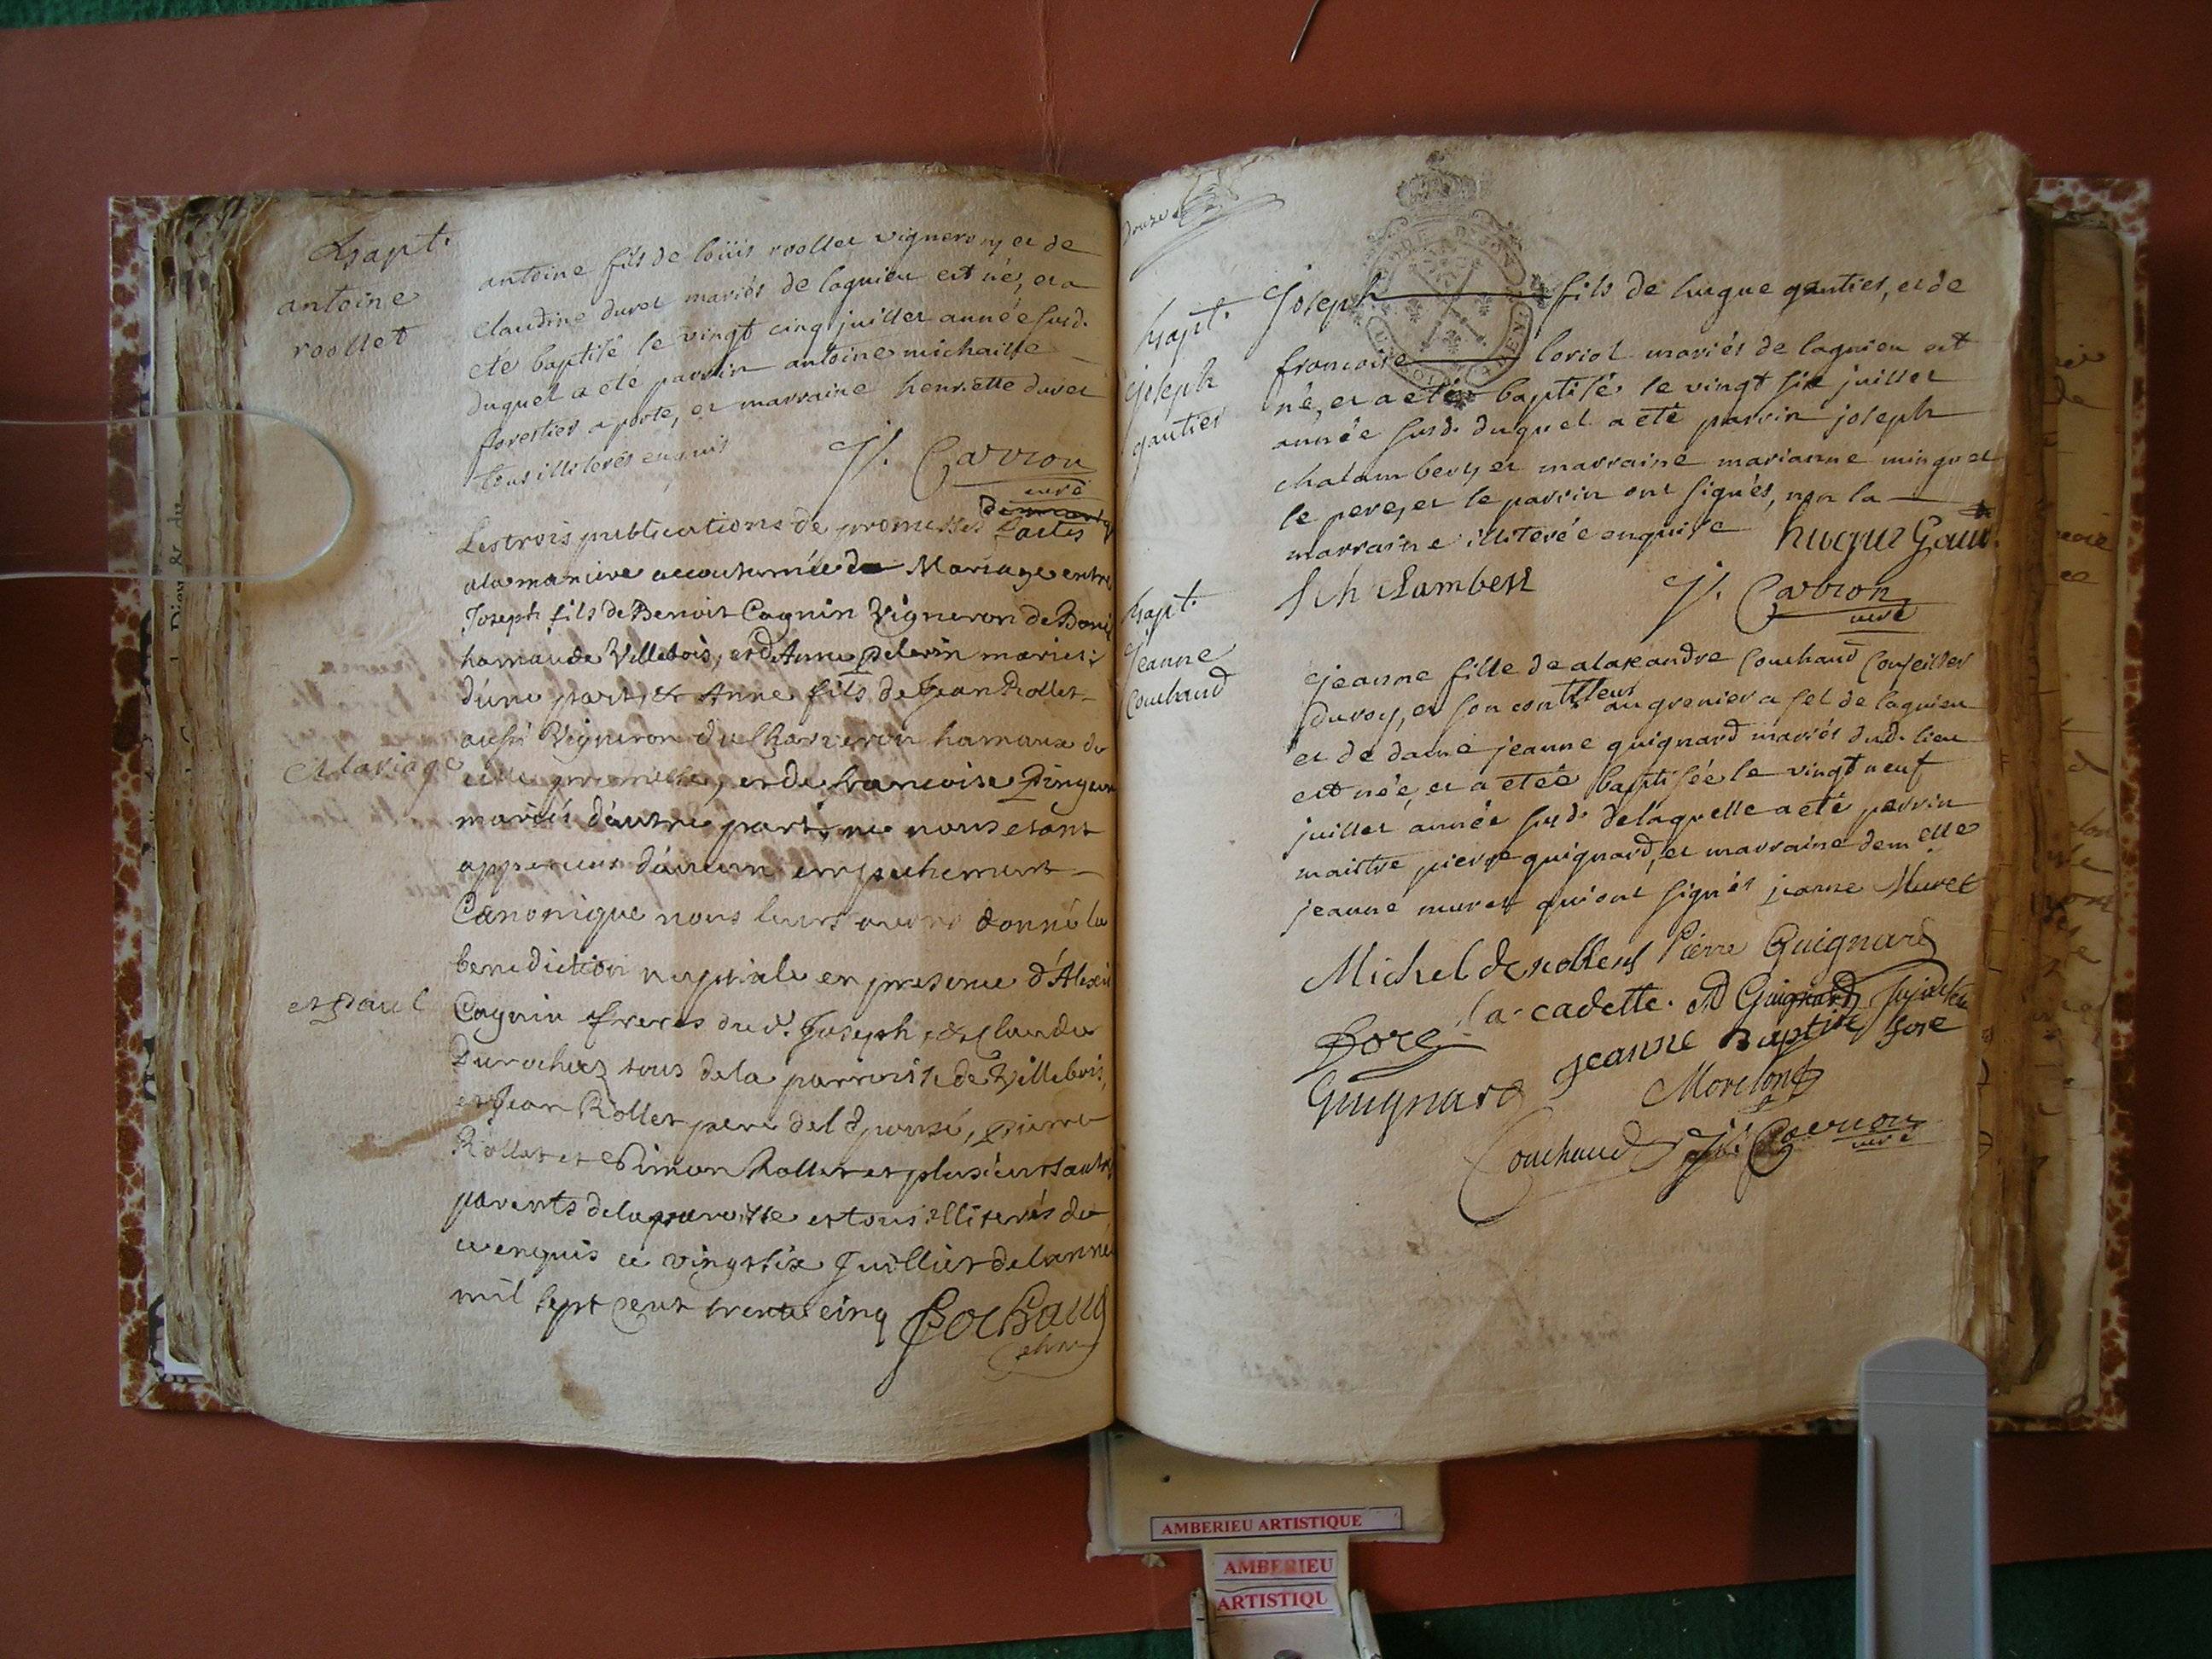 bapt.
antoine
roollet
antoine fils de loüis roollet vigneron, et de
claudine duret mariés de lagnieu est né, et a
eté baptisé le vingt cinq juillet année susd.
duquel a eté parrin antoine michaille
forestier a porte, et marraine henriette duret
tous illiterés enquis
J. Carron
curé
Les trois publications de promesses faites
a la maniere accoutumée de Mariage entre
Joseph fils de Benoit Cagnin Vigneron de
hamau de Villebois, et de Anne pelerin mariés
d'une part, et Anne fils de Jean Rollet
aussi Vigneron du Charveron hamaux de
Mariage
cette parroisse, et de francoise
mariés d'autre part, ne nous etant
apperceus d'aucun empechement
Canonique nous leurs avons donné la
benediction nuptiale en presence d'Alexis
et paul
Cagnin freres dud. Joseph, et Claude
Durochez tous de la parroisse de Villebois,
et Jean Rollet pere del Epouse, pierre
Rollet et Simon Rollet et plusieurs autres
parents de la parroisse et tous illiterés de
ce enquis ce vingt six Juillet de lanne
mil sept cent trente cinq
douze
bapt.
joseph
gautier
Joseph fils de hugue gautier, et de
francoise loriol mariés de lagnieu est
né, et a eté baptisé le vingt six juillet
année susd. duquel a eté parrin joseph
chalambert, et marraine marianne minguet
le pere, et le parrin ont signés, non la
marraine illiterée enquise hugue Gaut
J. Carron
curé
bapt.
jeanne
Couchaud
jeanne fille de alaxandre Couchaud Conseiller
du roy, et son contrlleur au grenier a sel de lagnieu
et de dame jeanne guignard mariés dud. lieu
est née, et a etée baptisée le vingt neuf
juillet année susd. de laquelle a eté parrin
maitre pierre guignard, et marraine dem elle
jeanne muret qui ont signés jeanne Muret
Michel Pierre Guignard
la cadette. Guignard
Boré Jeanne Baptise Boré
Guignard Morelong
Couchaud J. Carron
curé
AMBERIEU ARTISTIQUE
AMBERIEU
ARTISTIQU